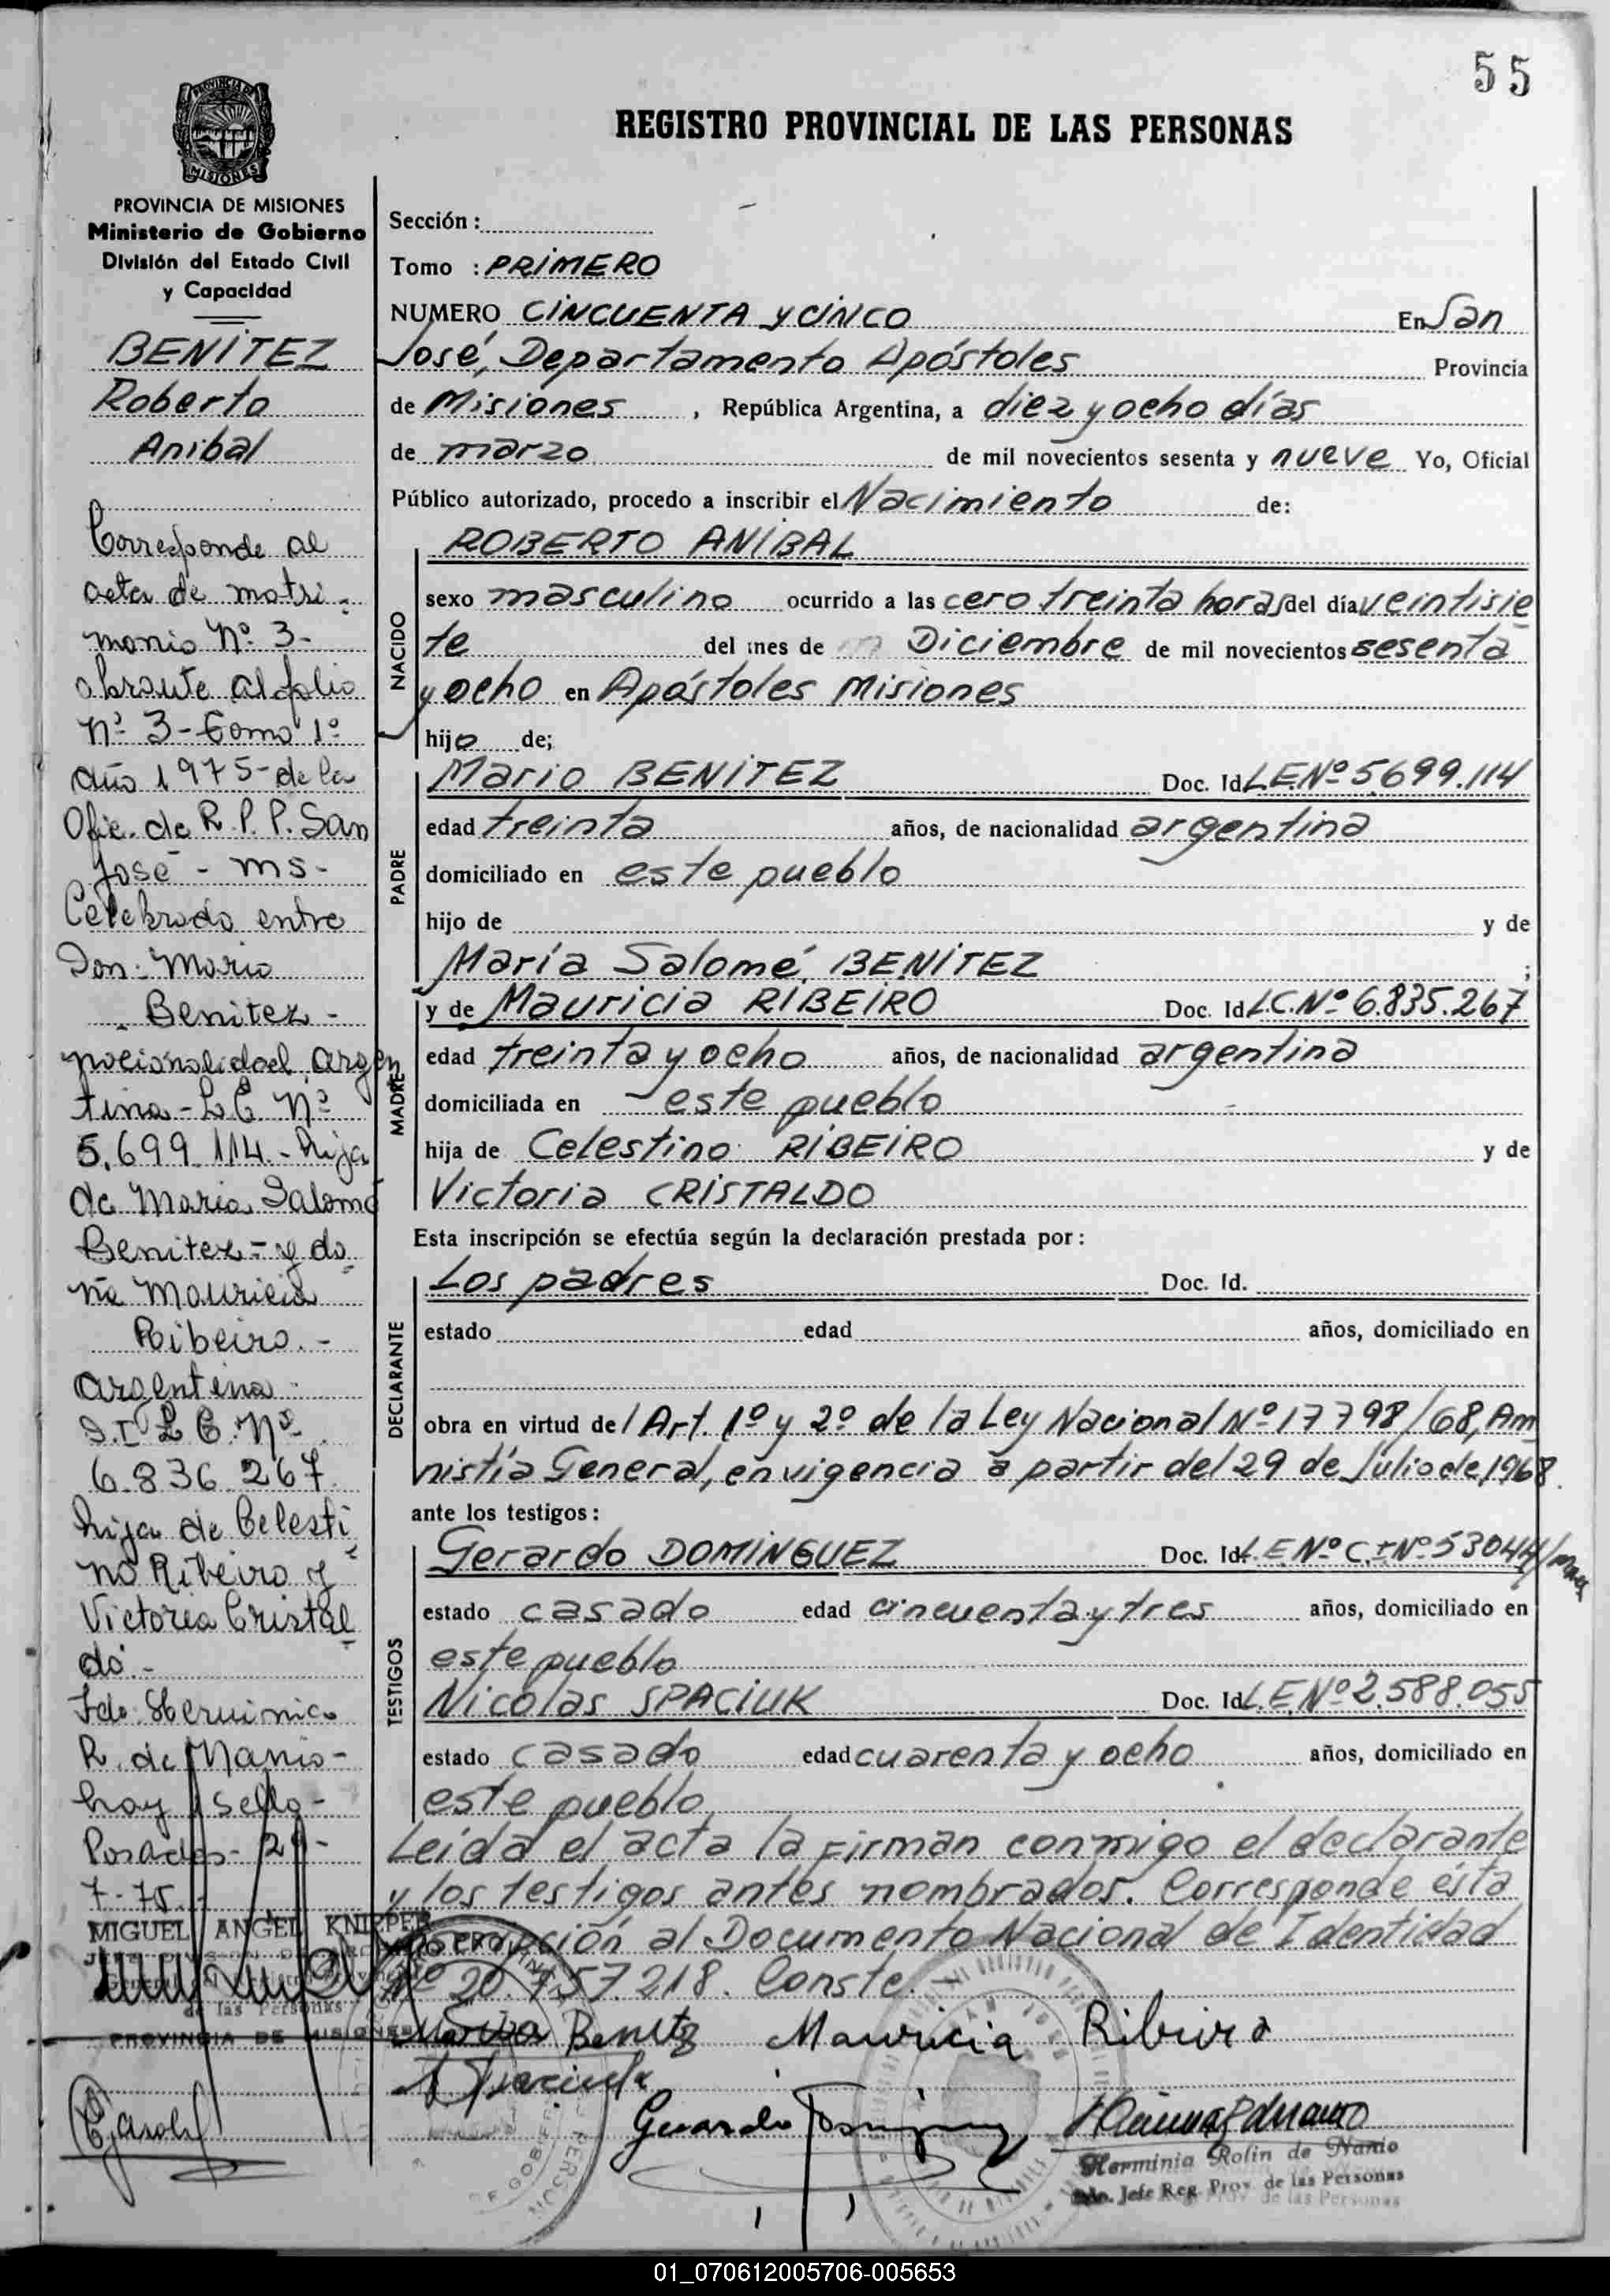 55
REGISTRO PROVINCIAL DE LAS PERSONAS
PROVINCIA DE MISIONES
MISIONES
PROVINCIA DE MISIONES
Ministerio de Gobierno
División del Estado Civil
y Capacidad
BENÍTEZ
Roberto
Anibal
Corresponde al
acta de matri-
monio Nº 3-
obrante al folio
Nº 3-Tomo 1º
año 1975-de la
Ofic. de R.P.P. San
José - ms-
Celebrado entre
Don: Mario
Benitez-
nacionalidad argen
tina-L.E. Nº
5.699.114.-hijo
de Maria Salomé
Benitez-y do
ña Mauricia
Ribeiro.-
argentina
D.I. L.C. Nº
6.836.267.
hija de Celesti
no Ribeiro y
Victoria Cristal
do.-
Fdo: Herminia
R. de Nanio-
hay 1 sello-
Posadas- 29-
7-75.-
MIGUEL ANGEL KNIPPER
de las Personas
PROVINCIA DE MISIONES
Sección :
Tomo : PRIMERO
NUMERO CINCUENTA y CINCO En San
José, Departamento Apóstoles Provincia
de Misiones , República Argentina, a diez y ocho días
de marzo de mil novecientos sesenta y nueve Yo, Oficial
Público autorizado, procedo a inscribir el Nacimiento de:
ROBERTO ANÍBAL
NACIDO
sexo masculino ocurrido a las cero treinta horas del día veintisie
te del mes de Diciembre de mil novecientos sesenta
y ocho en Apóstoles Misiones
hijo de;
PADRE
Mario BENÍTEZ Doc. Id. L.E.Nº 5.699.114
edad treinta años, de nacionalidad argentina
domiciliado en este pueblo
hijo de y de
María Salomé BENÍTEZ ;
MADRE
y de Mauricia RIBEIRO Doc. Id. L.C.Nº 6.835.267
edad treinta y ocho años, de nacionalidad argentina
domiciliada en este pueblo
hija de Celestino RIBEIRO y de
Victoria CRISTALDO
Esta inscripción se efectúa según la declaración prestada por :
DECLARANTE
Los padres Doc. Id.
estado edad años, domiciliado en
obra en virtud del Art. 1º y 2º de la Ley Nacional Nº 17798/68, Am
nistía General, en vigencia a partir del 29 de Julio de 1968.
ante los testigos :
TESTIGOS
Gerardo DOMÍNGUEZ Doc. Id. L.E Nº C.I Nº 53044/
estado casado edad cincuenta y tres años, domiciliado en
este pueblo
Nicolás SPACIUK Doc. Id. L.E.Nº 2.588.055
estado casado edad cuarenta y ocho años, domiciliado en
este pueblo
Leída el acta la firman conmigo el declarante
y los testigos antes nombrados. Corresponde ésta
inscripción al Documento Nacional de Identidad
Nº 20.757.218. Conste.-
Benitez Mauricia Ribeiro
Gerardo
Herminia Rolin de Nanio
Jefe Reg. Prov. de las Personas
01_070612005706-005653